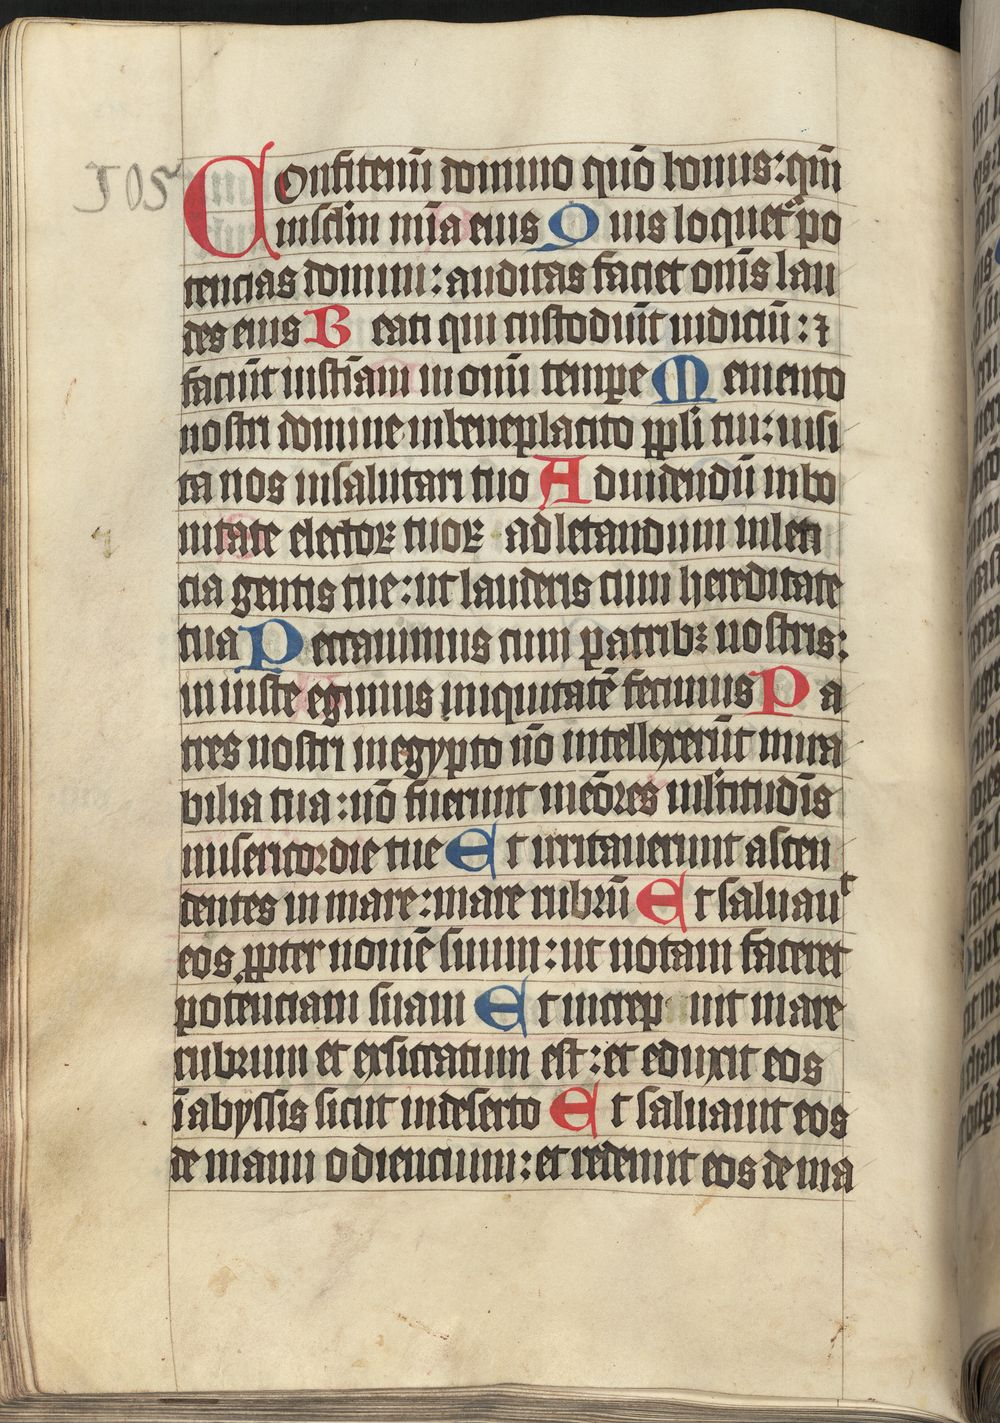 105
Confitemĩ domino quõ bonus: qm̃
inscl̃m mĩa eius Quis loquet᷑ po
tencias domini: auditas faciet om̃s lau
des eius Beati qui custodiũt iudiciũ: ⁊
faciũt iusticĩam in om̃i temꝑe Memento
nostri domine in beneplacito ppl̃i tui: uisi
ta nos in salutari tuo Ad uidendũ in bo
nitate electoꝝ tuoꝝ ad letandum in leti
cia gentis tue: ut lauderis cum hereditate
tua Peccauimus cum patribꝫ nostris:
iniuste egimus iniquitatẽ fecimus Pa
tres nostri in egypto nõ intellexerũt mira
bilia tua: nõ fuerunt mẽores mĩtitudĩs
misericordie tue Et irritauerunt ascen
dentes in mare: mare rubrũ Et saluauͭ
eos ꝓpter nomẽ suum: ut notam faceret
potenciam suam Et increp uit mare
rubrum et exsiccatum est: et eduxit eos
ĩ abyssis sicut in deserto Et saluauit eos
de manu odiencium: et redemit eos de ma